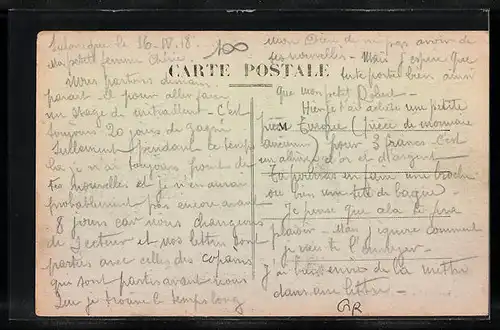 Salonique le 16-IV-18.
100
Ma petite femme chérie
CARTE POSTALE
Nous partons demain
parait-il pour aller faire
un stage de entraillent - c'est
toujours 20 jours de gagné
Seulement pendant ce temps
là je n'ai toujours point de
tes nouvelles et je n'en aurai
probablement pas encore avant
8 jours car nous changeons
de secteur et nos lettres sont
parties avec celles des copains
qui sont partis avant nous
Que je trouve le temps long
mon Dieu de ne pas avoir de
tes nouvelles - Mais j'espère que
tu te portes bien ainsi
que mon petit
Hier je t'ai acheté une petite
pièce Turque (pièce de monnaie
ancienne) pour 3 francs - c'est
un alliage d'or et d'argent
Tu pourras en faire une broche
ou bien une tête de bague -
Je pense que cela te fera
plaisir - Mais j'ignore comment
je vais te l'envoyer -
J'ai bien envie de la mettre
dans une lettre -